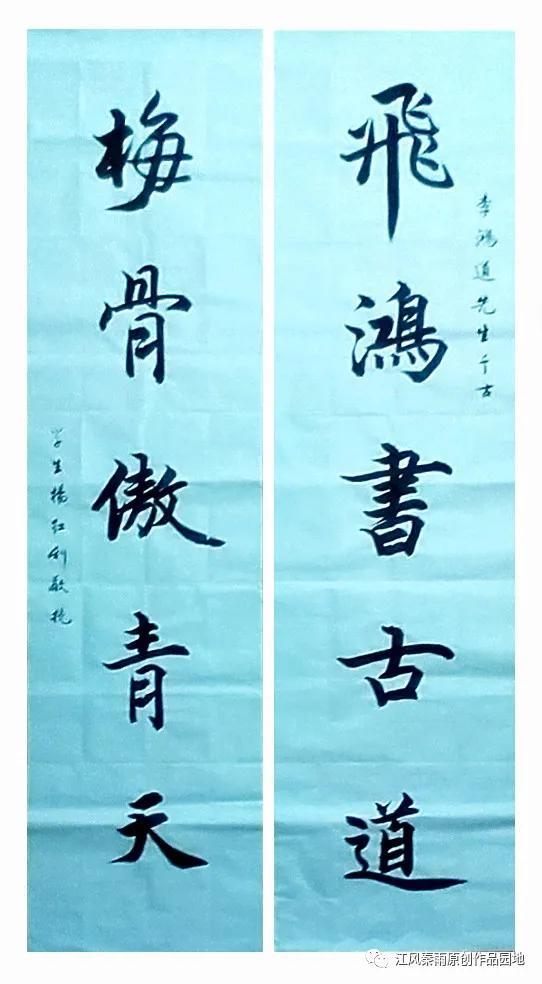 李鴻道先生千古
飛鴻書古道
梅骨傲青天
学生楊红利敬挽
江风秦雨原创作品园地